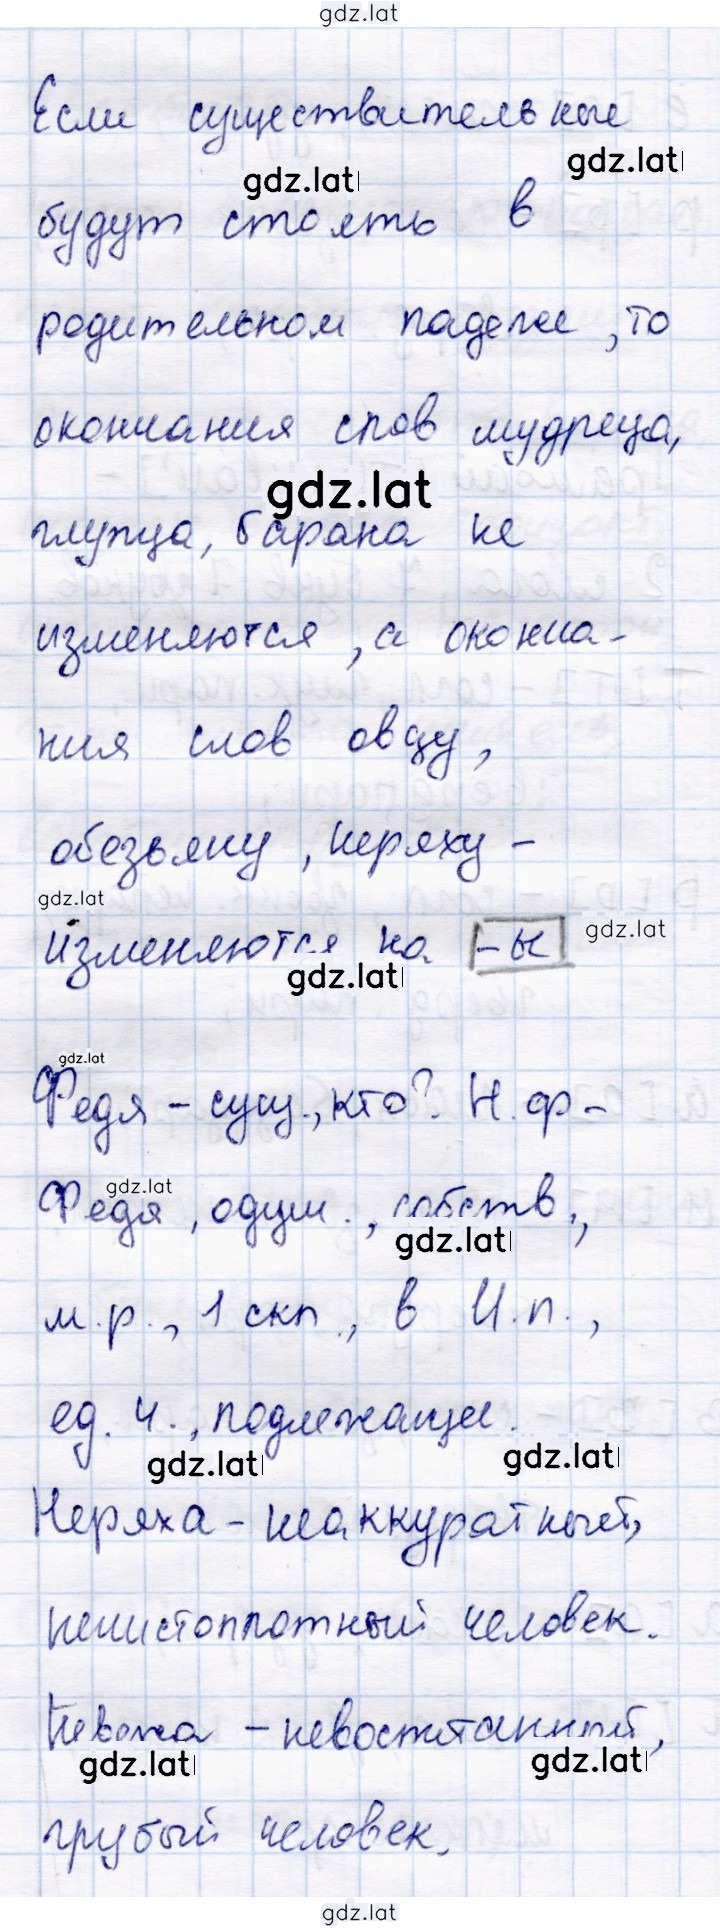 gdz.lat
Если существительные
gdz.lat
gdz.lat
будут стоять в
родительном падеже, то
окончания слов мудреца,
gdz.lat
глупца, барана не
изменяются, а оконча-
ния слов овцу,
обезьяну, неряху -
gdz.lat
изменяются на -ы
gdz.lat
gdz.lat
gdz.lat
Федя - сущ., кто? Н. ф -
gdz.lat
Федя, одуш., собств.,
gdz.lat
м.р., 1 скл., в И.п.,
ед. ч., подлежащее.
gdz.lat
gdz.lat
Неряха - неаккуратный,
нечистоплотный человек.
Невежа - невоспитанный,
gdz.lat
gdz.lat
грубый человек.
gdz.lat